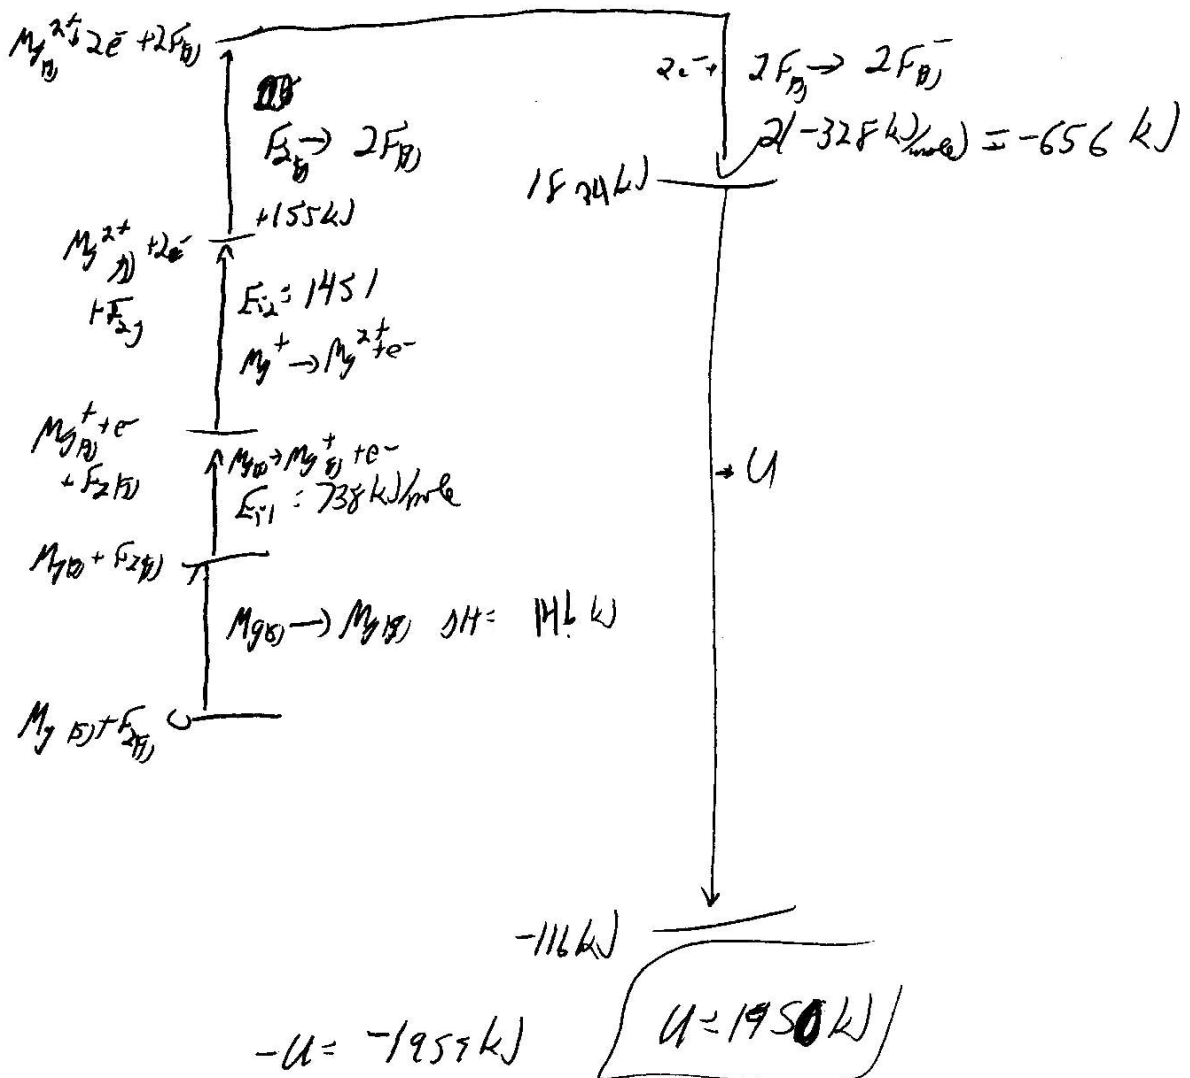 Mg²⁺(g) + 2e⁻ + 2F(g)
F₂(g) → 2F(g)
+155kJ
Mg²⁺(g) + 2e⁻
+ F₂g
Ei2 = 1451
Mg⁺ → Mg²⁺ + e⁻
Mg⁺(g) + e⁻
+ F₂(g)
Mg(g) → Mg⁺(g) + e⁻
Ei1 = 738 kJ/mole
Mg(g) + F₂(g)
Mg(s) → Mg(g) ΔH = kJ
Mg(s) + F₂(g) 0
2e⁻ + 2F(g) → 2F(g)⁻
2(-328 kJ/mole) = -656 kJ
kJ
→ U
-116kJ
-U = kJ
U = kJ